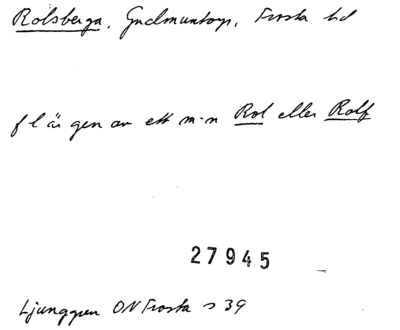 Rolsberga, Gudmuntorp, Frosta hd
f l är gen av ett m.n Rol eller Rolf
27945
Ljunggren ON Frosta s 39